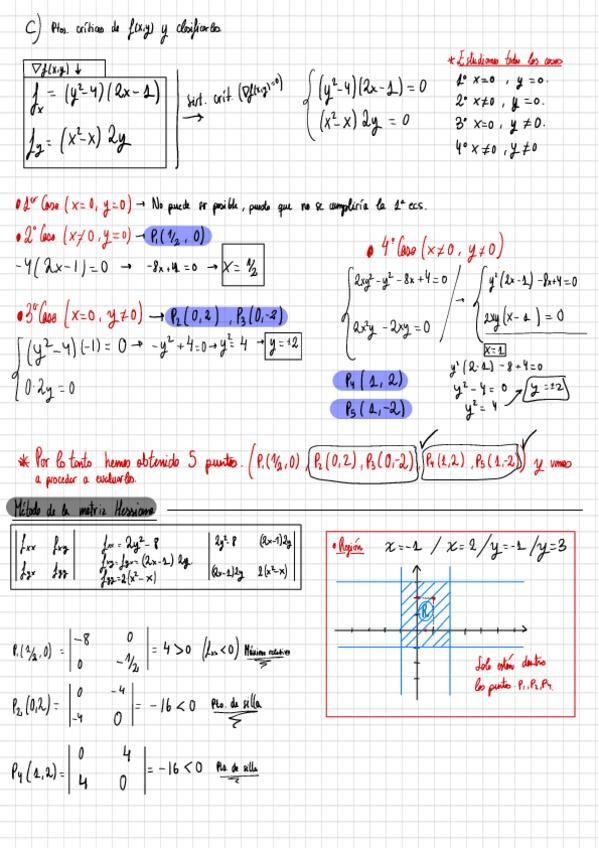 C) Ptos. críticos de f(x,y) y clasificarlos
∇f(x,y) ↓
fx = (y²-4)(2x-1)
fy = (x²-x) 2y
Sist. crít. (∇f(x,y)=0) →
(y²-4)(2x-1) = 0
(x²-x) 2y = 0
* Estudiamos todos los casos
1º x=0, y=0.
2º x≠0, y=0.
3º x=0, y≠0.
4º x≠0, y≠0
• 1er Caso (x=0, y=0) → No puede ser posible, puesto que no se cumpliría la 1ª ecs.
• 2º Caso (x≠0, y=0) → P₁(1/2, 0)
-4(2x-1)=0 → -8x+4=0 → x=1/2
• 3er Caso (x=0, y≠0) → P₂(0,2), P₃(0,-2)
(y²-4)(-1)=0 → -y²+4=0 → y²=4 → y=±2
0·2y=0
• 4º Caso (x≠0, y≠0)
2xy²-y²-8x+4=0 → y²(2x-1)-8x+4=0
2x²y-2xy=0
2xy(x-1)=0
x=1
y²(2-1)-8+4=0
y²-4=0
y²=4 → y=±2
P₄(1,2)
P₅(1,-2)
* Por lo tanto hemos obtenido 5 puntos. (P₁(1/2,0), P₂(0,2), P₃(0,-2), P₄(1,2), P₅(1,-2)) y vamos
a proceder a evaluarlos.
Método de la matriz Hessiana
fxx fxy
fyx fyy
fxx = 2y²-8
fxy=fyx=(2x-1)2y
fyy=2(x²-x)
2y²-8 (2x-1)2y
(2x-1)2y 2(x²-x)
• Región x=-1 / x=2 / y=-1 / y=3
R
Solo están dentro
los puntos P₁, P₂, P₄.
P₁(1/2,0) = |-8 0; 0 -1/2| = 4>0 (fxx<0) Máximo relativo
P₂(0,2) = |0 -4; -4 0| = -16<0 Pto. de silla
P₄(1,2) = |0 4; 4 0| = -16<0 Pto. de silla